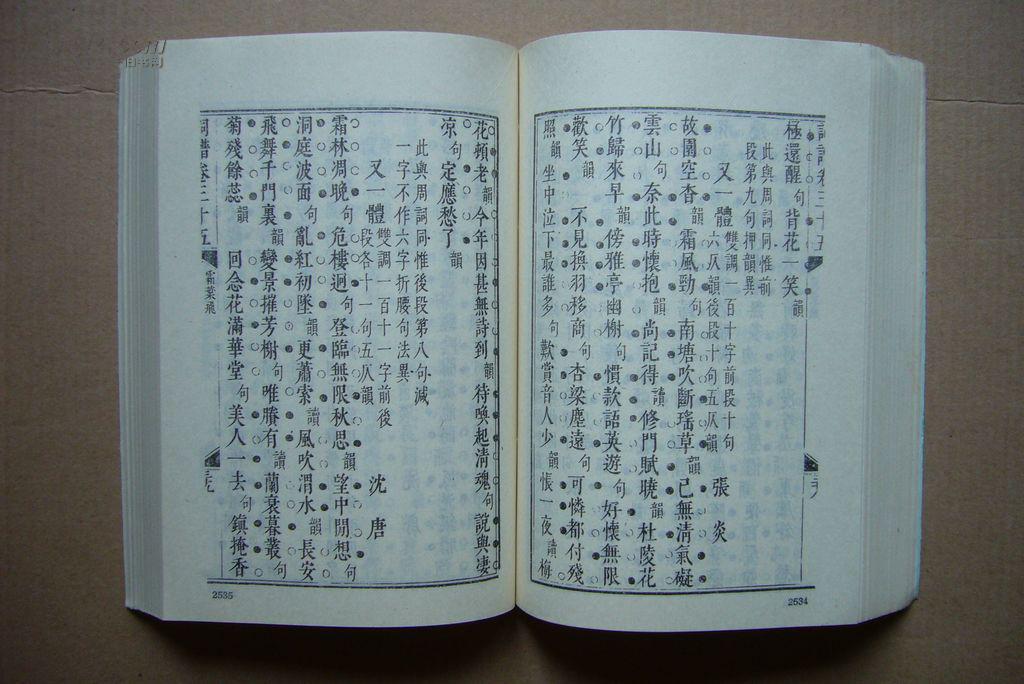 詞譜卷三十五
極還醒句背花一笑韻
此與周詞同惟前
段第九句押韻異
又一體雙調一百十字前段十句
六仄韻後段十句五仄韻 張炎
故園空杳韻霜風勁句南塘吹斷瑤草韻已無清氣礙
雲山句奈此時懷抱韻尚記得讀修門賦曉韻杜陵花
竹歸來早韻傍雅亭幽榭句慣款語英遊句好懷無限
歡笑韻不見換羽移商句杏梁塵遠句可憐都付殘
照韻坐中泣下最誰多句歎賞音人少韻悵一夜讀梅
2534
花頓老韻今年因甚無詩到韻待喚起清魂句說與淒
涼句定應愁了韻
此與周詞同惟後段第八句減
一字不作六字折腰句法異
又一體雙調一百十一字前後
段各十一句五仄韻 沈唐
霜林凋晚句危樓迥句登臨無限秋思韻望中閒想句
洞庭波面句亂紅初墜韻更蕭索讀風吹渭水韻長安
飛舞千門裏韻變景摧芳榭句唯賸有讀蘭衰暮叢句
菊殘餘蕊韻回念花滿華堂句美人一去句鎮掩香
詞譜卷三十五 霜葉飛
2535